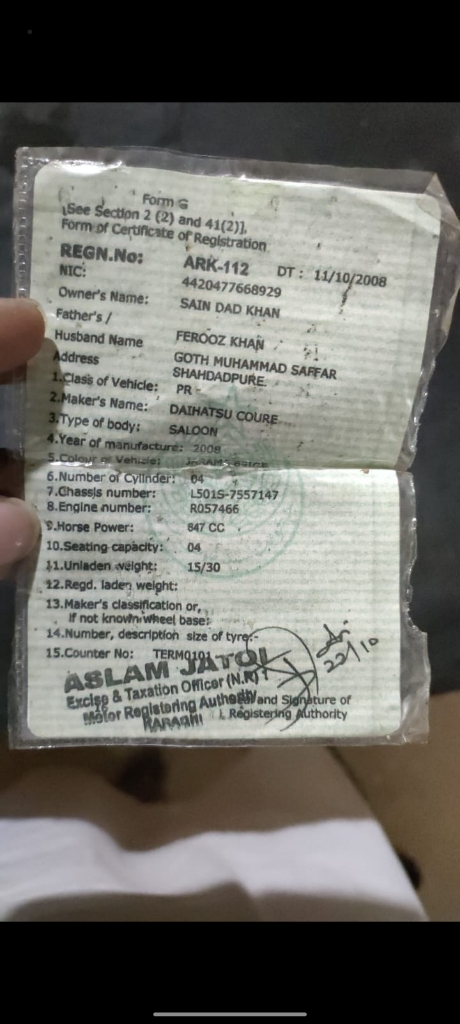 Form G
[See Section 2 (2) and 41(2)],
Form of Certificate of Registration
REGN.No: ARK-112 DT : 11/10/2008
NIC: 4420477668929
Owner's Name: SAIN DAD KHAN
Father's /
Husband Name FEROOZ KHAN
Address GOTH MUHAMMAD SAFFAR
SHAHDADPURE.
1.Class of Vehicle: PR -
2.Maker's Name: DAIHATSU COURE
3.Type of body: SALOON
4.Year of manufacture: 2008
5.Colour of Vehicle:
6.Number of Cylinder: 04
7.Chassis number: L501S-7557147
8.Engine number: R057466
9.Horse Power: 847 CC
10.Seating capacity: 04
11.Unladen weight: 15/30
12.Regd. laden weight:
13.Maker's classification or,
if not known wheel base:
14.Number, description size of tyre:-
15.Counter No: TERM0101
22/10
ASLAM JATOI
Excise & Taxation Officer (N.R)
Motor Registering Authority
KARACHI
and Signature of
Registering Authority